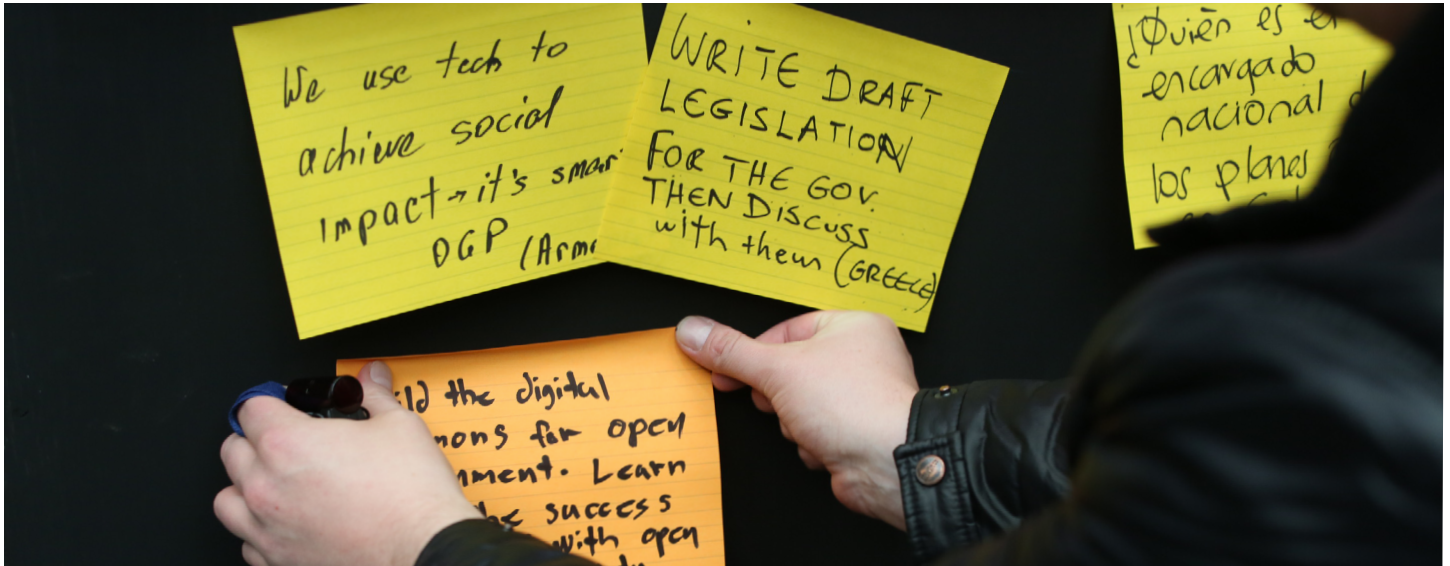 We use tech to
achieve social
impact → it's
OGP
WRITE DRAFT
LEGISLATION
FOR THE GOV.
THEN DISCUSS
with them (GREECE)
¿Quién es
encargado
nacional
los planes
the digital
for open
Learn
success
with open